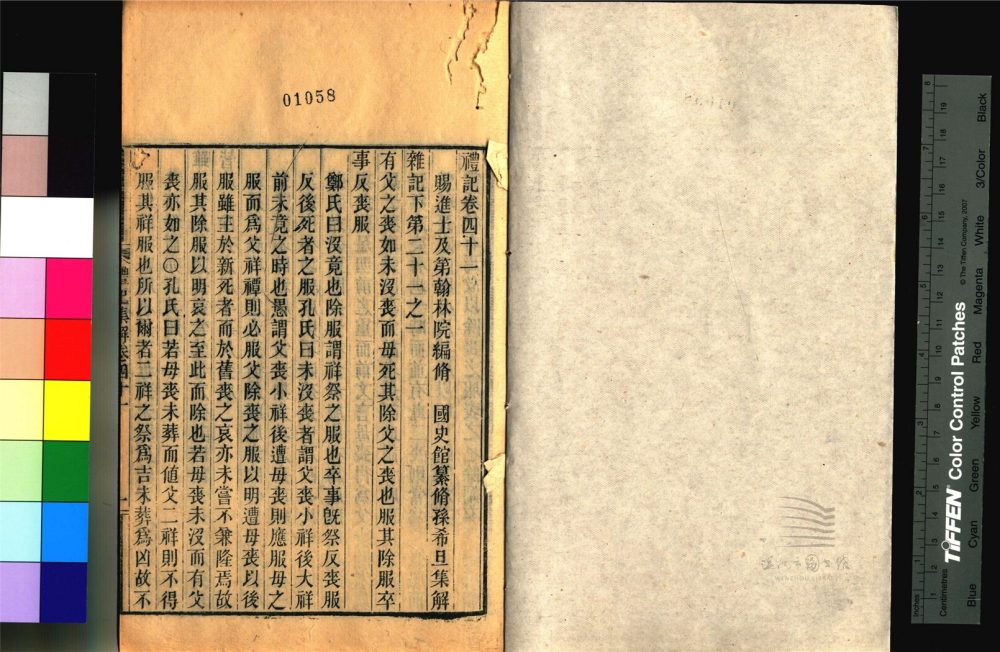 01058
禮記卷四十一
賜進士及第翰林院編脩　國史館纂脩孫希旦集解
雜記下第二十一之一
有父之喪如未沒喪而母死其除父之喪也服其除服卒
事反喪服
鄭氏曰沒竟也除服謂祥祭之服也卒事旣祭反喪服
反後死者之服孔氏曰未沒喪者謂父喪小祥後大祥
前未竟之時也愚謂父喪小祥後遭母喪則應服母之
服而爲父祥禫則必服父除喪之服以明遭母喪以後
服雖主於新死者而於舊喪之哀亦未嘗不兼隆焉故
服其除服以明哀之至此而除也若母喪未沒而有父
喪亦如之〇孔氏曰若母喪未葬而値父二祥則不得
服其祥服也所以爾者二祥之祭爲吉未葬爲凶故不
WENZHOU LIBRARY
TIFFEN Color Control Patches
© The Tiffen Company, 2007
Inches
Centimetres
Blue
Cyan
Green
Yellow
Red
Magenta
White
3/Color
Black